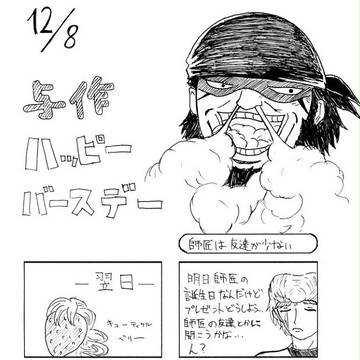 12/8
与作
ハッピー
バースデー
師匠は友達が少ない
ー翌日ー
キューティクル
ベリー
明日師匠の
誕生日なんだけど
プレゼントどうしよう…
師匠の友達とかに
聞こうかな…
ん?